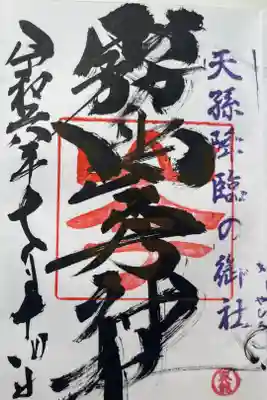 天孫降臨の御社
霧島岑神社
令和六年 月十四日